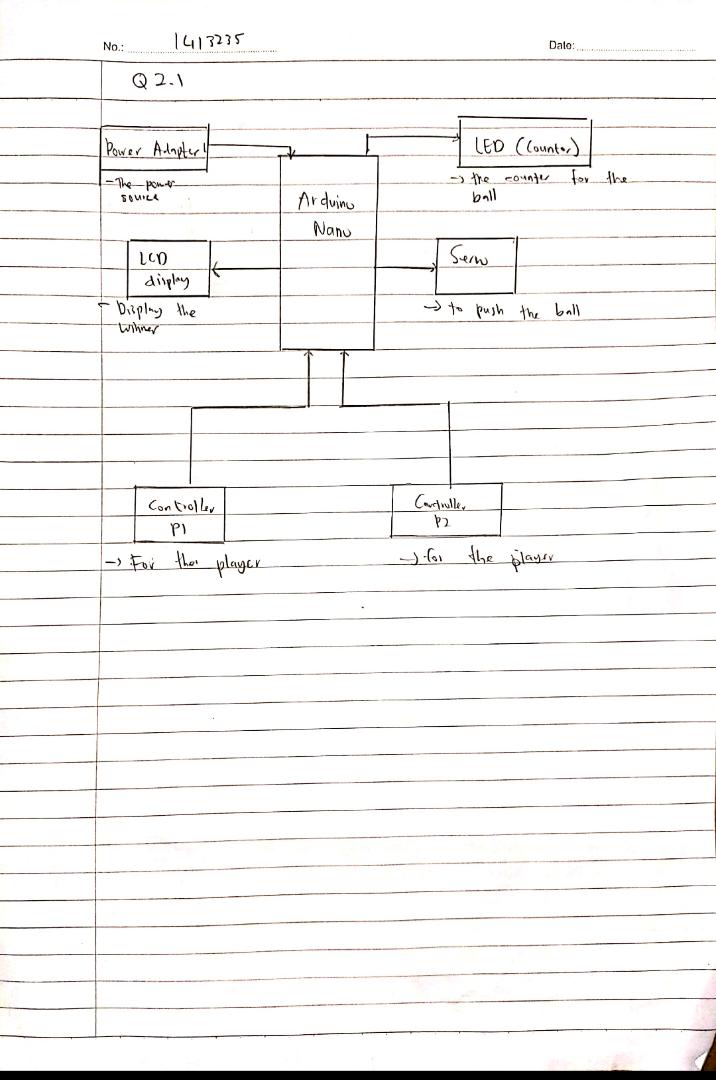 No.: 1413235
Date:
Q 2.1
Power Adapter
- The power
source
LED (Counter)
-> the counter for the
ball
Arduino
Nano
LCD
display
- Display the
winner
Servo
-> to push the ball
Controller
P1
-> For the player
Controller
P2
-> for the player